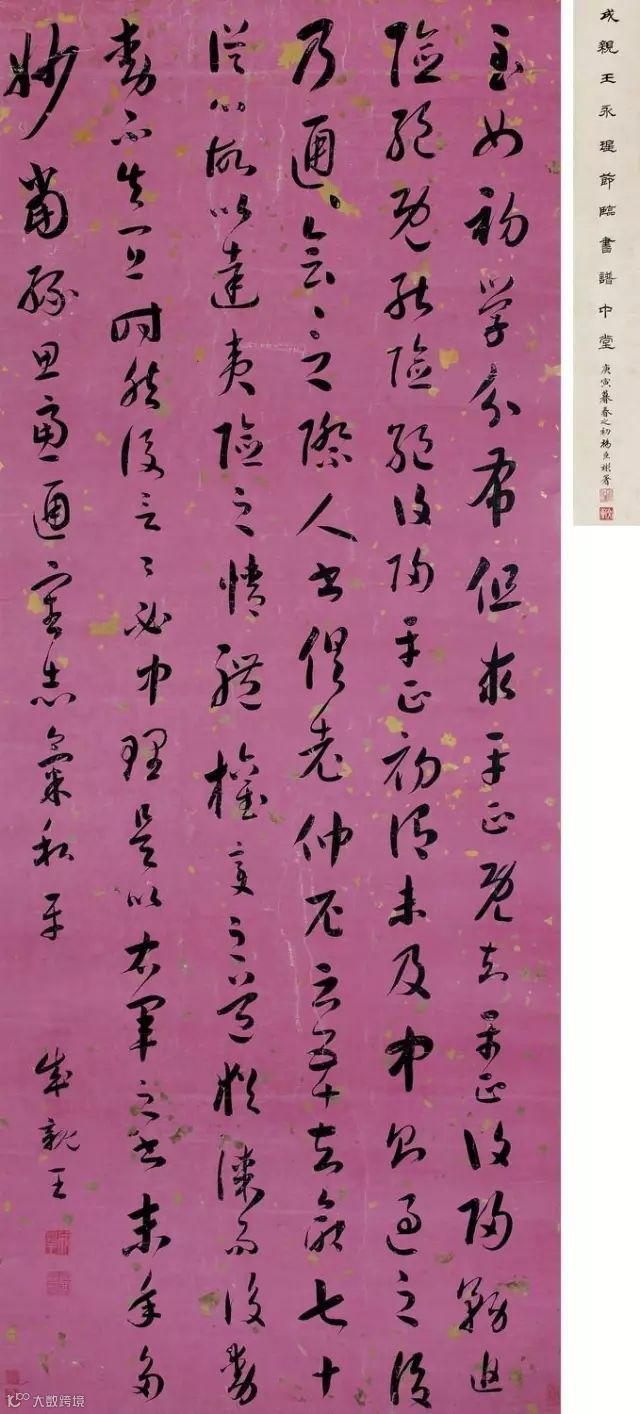 成親王永瑆節臨書譜中堂
庚寅暮春之初楊署
至如初學分布但求平正既知平正復歸務追
險絕既能險絕復歸平正初謂未及中則過之後
乃通〻會〻之際人書俱老仲尼云五十知命七十
從心故以達夷險之情體權變之道猶謀而後動
動不失宜時然後言〻必中理是以右軍之書末年多
妙當緣思慮通審志氣和平
成親王
大数跨境